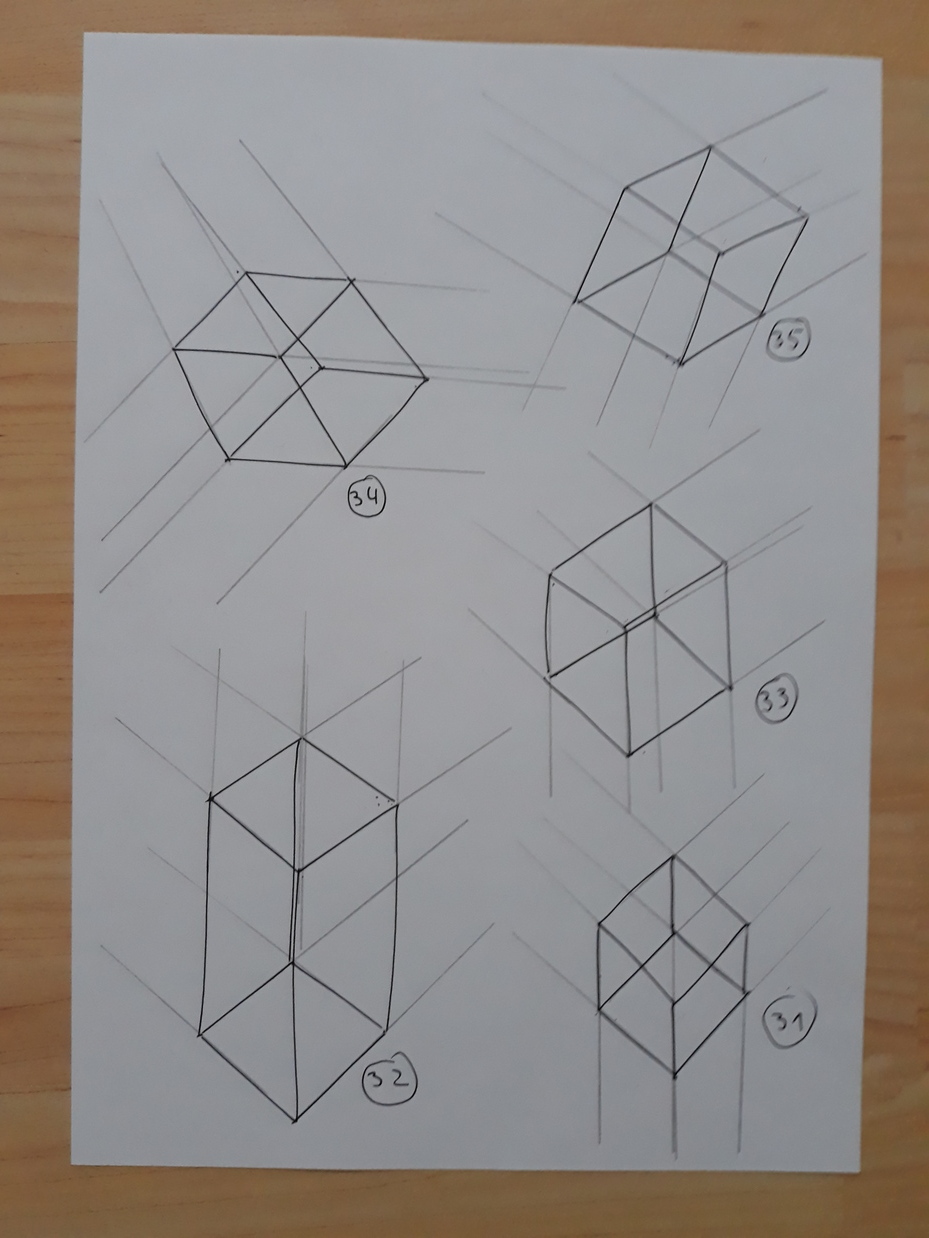 35
34
33
32
31